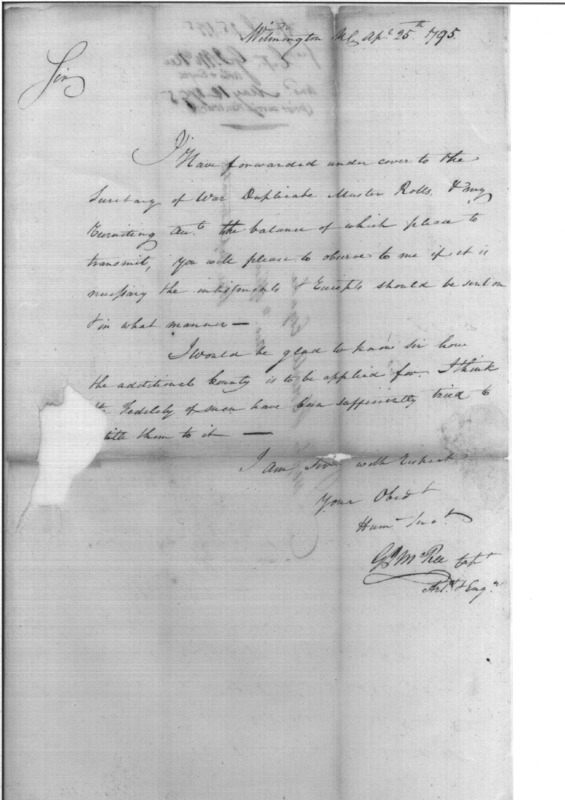 Wilmington NC Apl 25th 1795.
Sir
I Have forwarded under cover to the
Secretary of War Duplicate Muster Rolls & my
Recruiting Acct the balance of which please to
transmit, you will please to observe to me if it is
necessary the indentments & Receipts should be sent on
& in what manner —
I would be glad to know sir how
the additional bounty is to be applied for. I think
the Fedelety of men have been sufficiently tried to
title them to it —
I am, Sir with Respect
Your Obedt
Humle Servt
Gd McRee Capt
Art. & Engrs